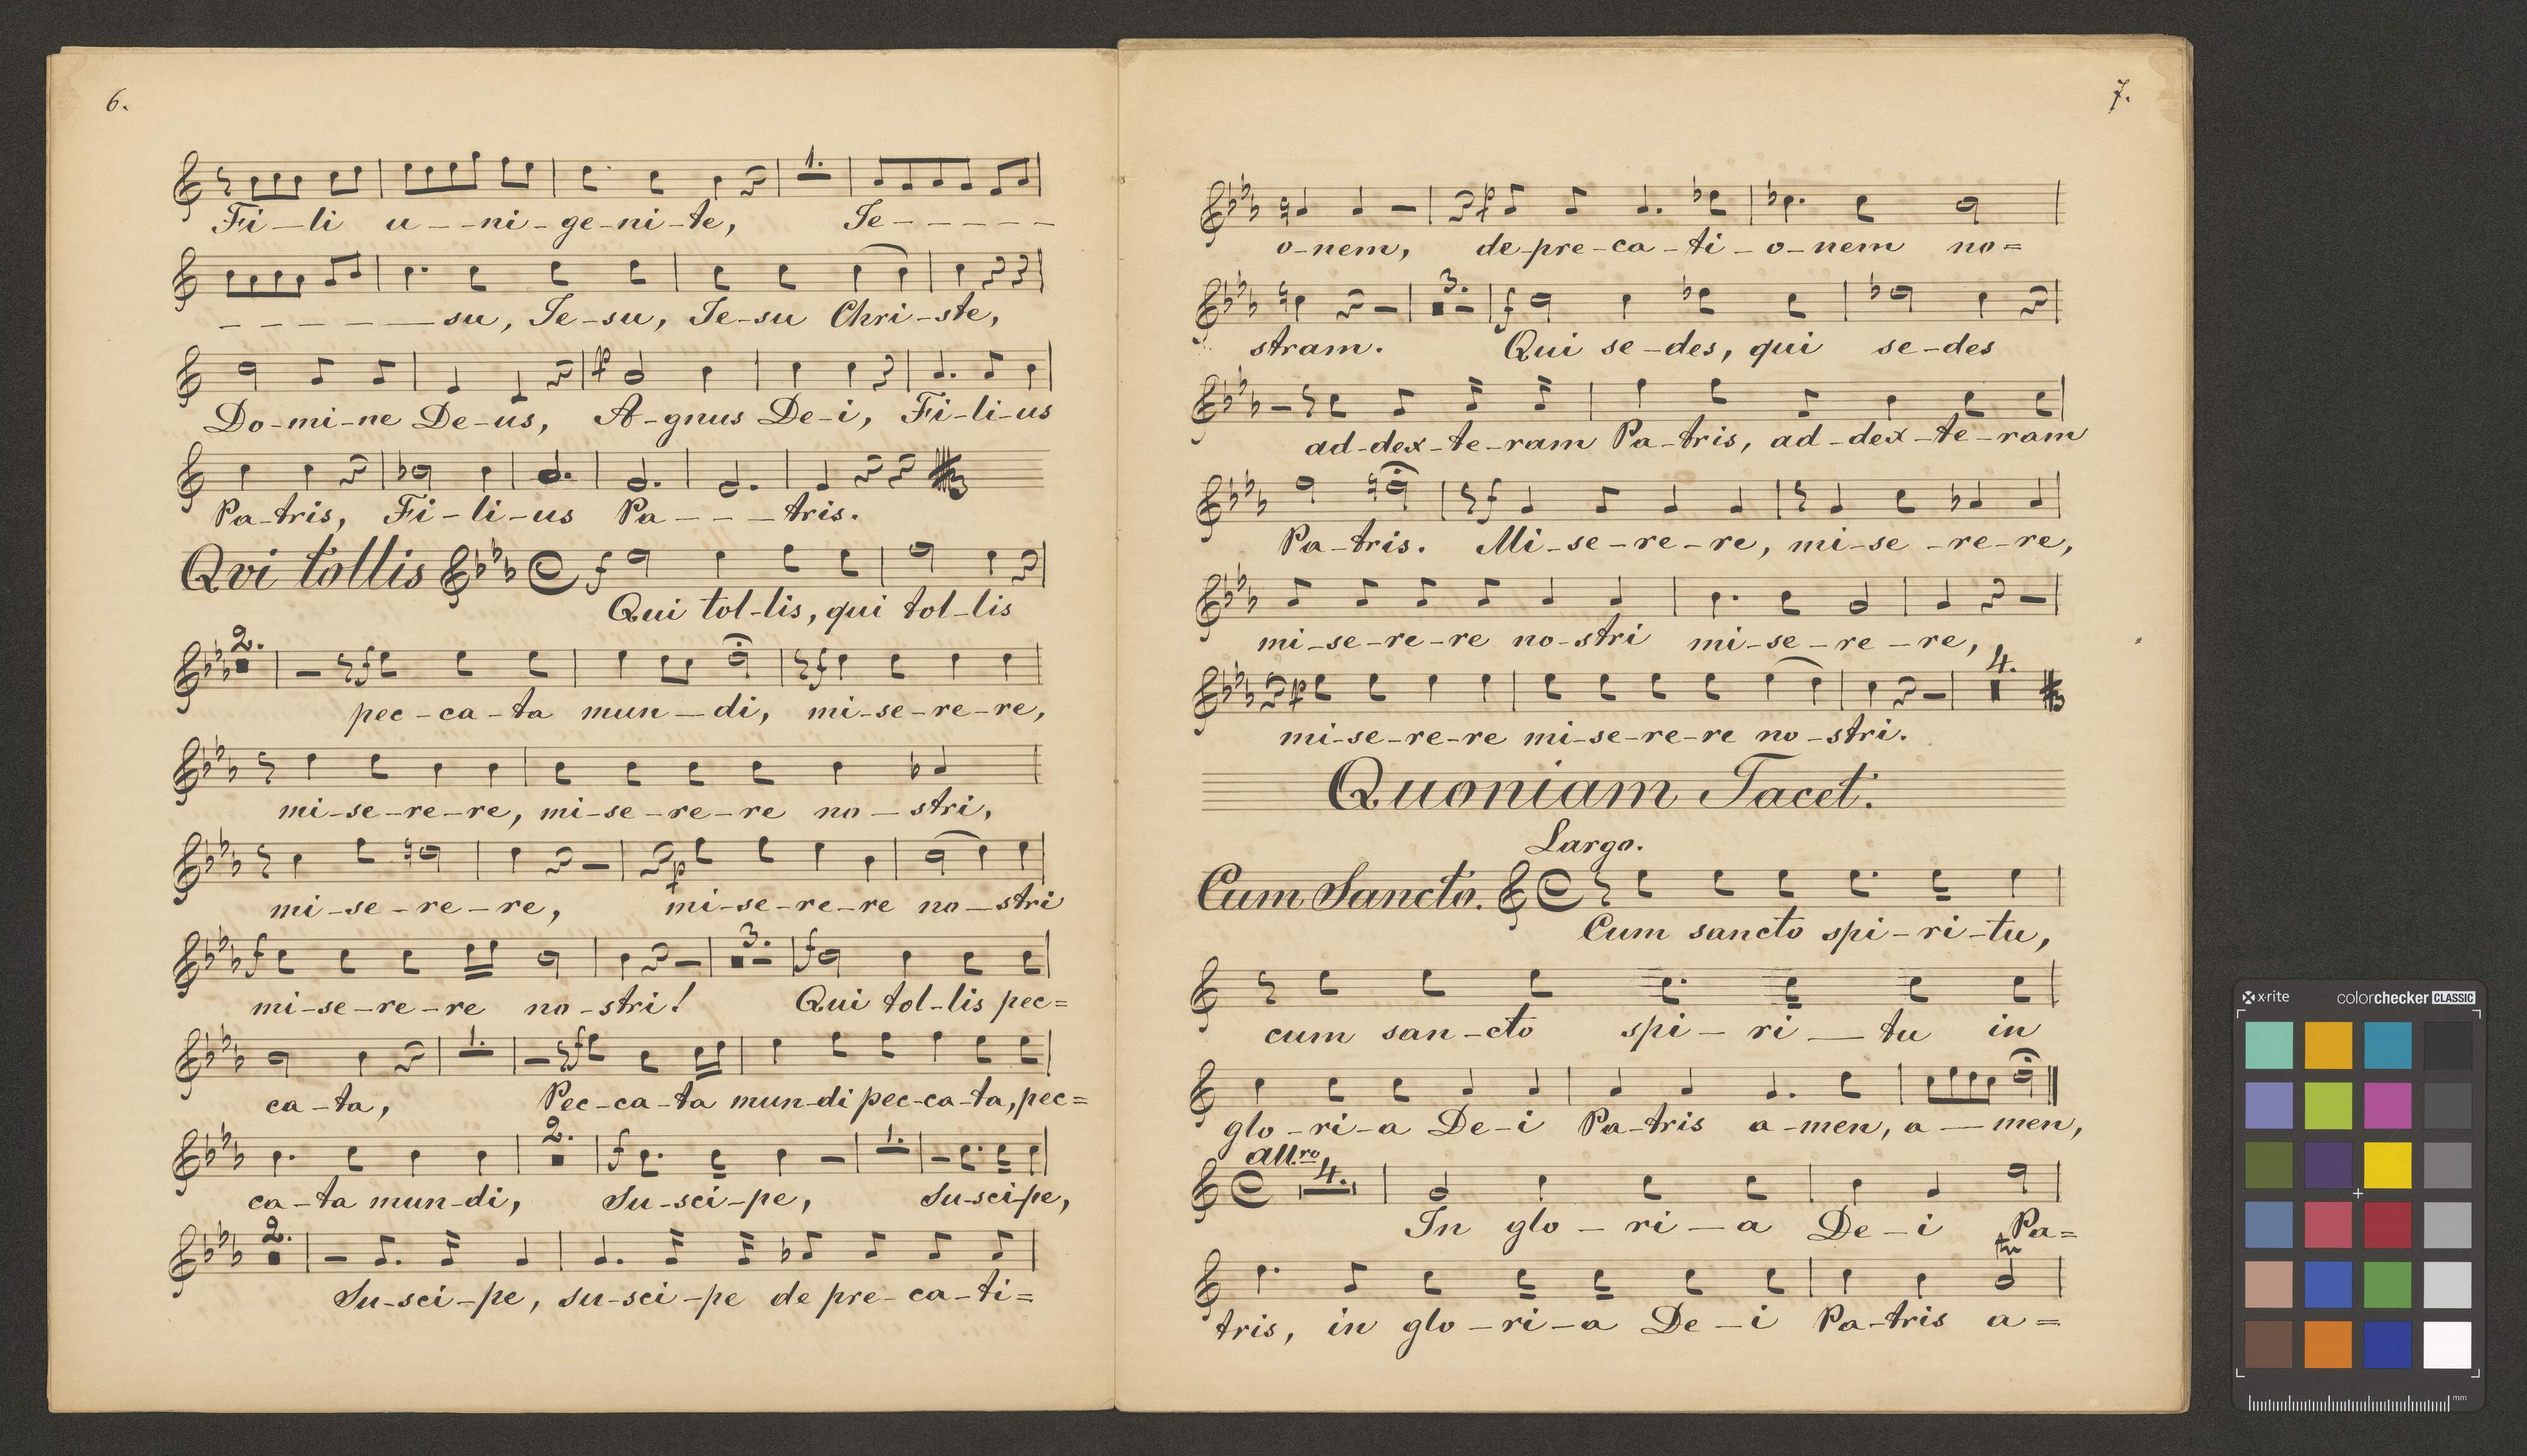 6.
1.
Fi-li u--ni-ge-ni-te, Je-----
------su, Je-su, Je-su Chri-ste,
Do-mi-ne De-us, A-gnus De-i, Fi-li-us
Pa-tris, Fi-li-us Pa---tris.
Qvi tollis
Qui tol-lis, qui tol-lis
2.
pec-ca-ta mun-di, mi-se-re-re,
mi-se-re-re, mi-se-re-re no-stri,
mi-se-re-re, mi-se-re-re no-stri
3.
mi-se-re-re no-stri! Qui tol-lis pec=
1.
ca-ta, Pec-ca-ta mun-di pec-ca-ta, pec=
2. 1.
ca-ta mun-di, Su-sci-pe, Su-sci-pe,
2.
Su-sci-pe, su-sci-pe de pre-ca-ti=
7.
o-nem, de-pre-ca-ti-o-nem no=
3.
stram. Qui se-des, qui se-des
ad-dex-te-ram Pa-tris, ad-dex-te-ram
Pa-tris. Mi-se-re-re, mi-se-re-re,
mi-se-re-re no-stri mi-se-re-re,
4.
mi-se-re-re mi-se-re-re no-stri.
Quoniam Tacet.
Largo.
Cum Sancto.
Cum sancto spi-ri-tu,
cum san-cto spi-ri-tu in
glo-ri-a De-i Pa-tris a-men, a-men,
all.ro 4.
In glo-ri-a De-i Pa=
tr
tris, in glo-ri-a De-i Pa-tris a=
x-rite colorchecker CLASSIC
mm